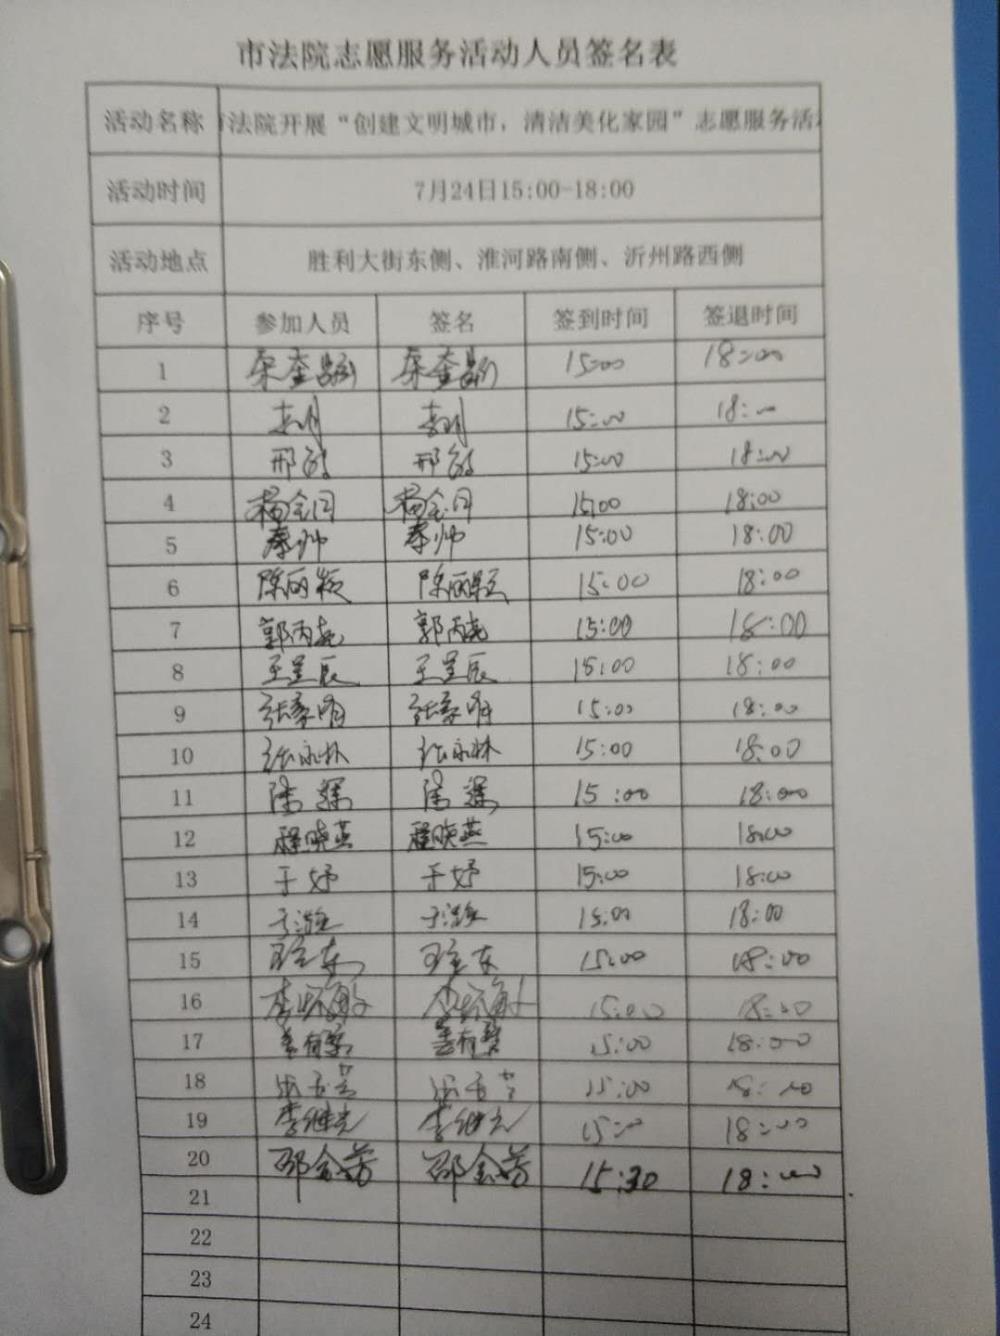 市法院志愿服务活动人员签名表
活动名称 法院开展“创建文明城市，清洁美化家园”志愿服务活
活动时间 7月24日15:00-18:00
活动地点 胜利大街东侧、淮河路南侧、沂州路西侧
序号 参加人员 签名 签到时间 签退时间
1 15:00 18:00
2 15:00 18:00
3 邢 邢 15:00 18:00
4 杨 杨 15:00 18:00
5 秦帅 秦帅 15:00 18:00
6 陈丽颖 陈丽颖 15:00 18:00
7 郭丙尧 郭丙尧 15:00 18:00
8 王呈辰 王呈辰 15:00 18:00
9 张 张 15:00 18:00
10 张永林 张永林 15:00 18:00
11 15:00 18:00
12 程晓燕 程晓燕 15:00 18:00
13 于妤 于妤 15:00 18:00
14 于 于 15:00 18:00
15 15:00 18:00
16 李 李 15:00 18:00
17 姜有 姜有 15:00 18:00
18 15:00 18:00
19 李继光 李继光 15:00 18:00
20 邵会芳 邵会芳 15:30 18:00
21
22
23
24